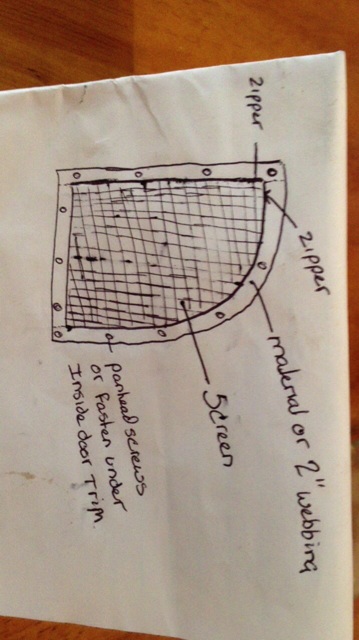 zipper
zipper
material or 2" webbing
Screen
panhead screws
or fasten under
Inside door Trim.